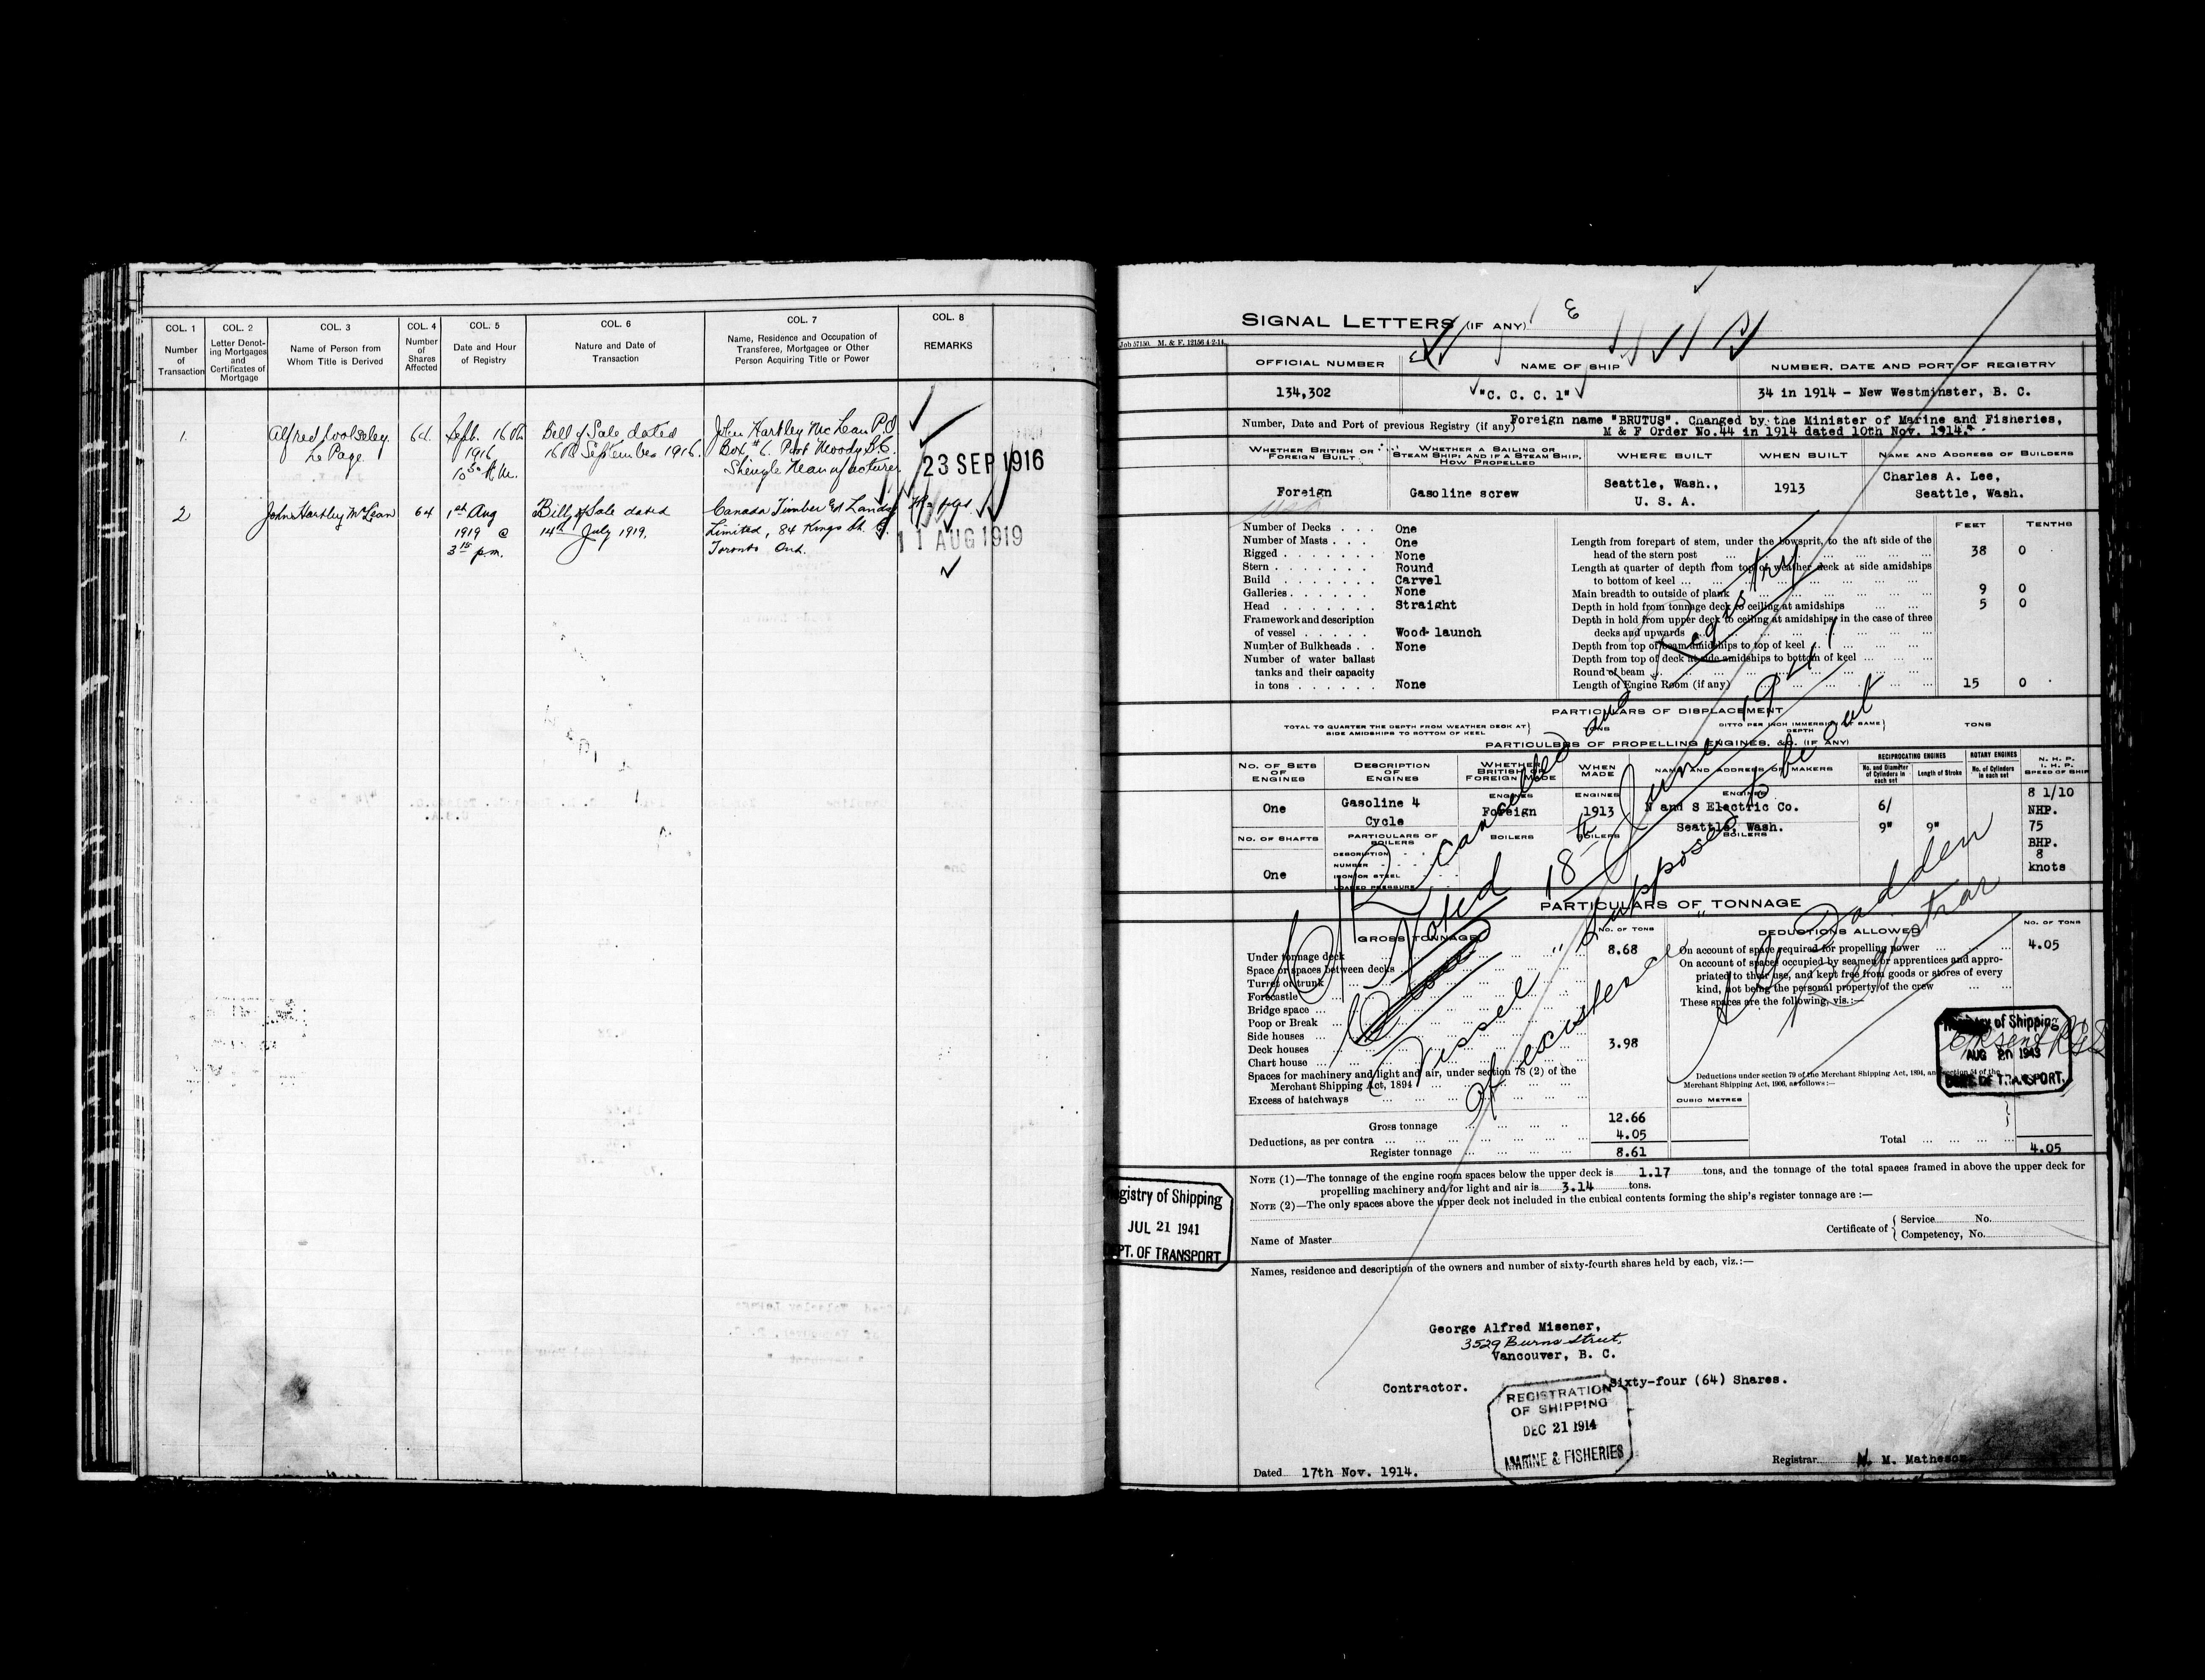 COL. 1
Number
of
Transaction
COL. 2
Letter Denot-
ing Mortgages
and
Certificates of
Mortgage
COL. 3
Name of Person from
Whom Title is Derived
COL. 4
Number
of
Shares
Affected
COL. 5
Date and Hour
of Registry
COL. 6
Nature and Date of
Transaction
COL. 7
Name, Residence and Occupation of
Transferee, Mortgagee or Other
Person Acquiring Title or Power
COL. 8
REMARKS
1.
Alfred Wolseley
Le Page
64.
Sept. 16th
1916
10 30 A.M.
Bill of Sale dated
16th September 1916.
John Hartley McLean P.O
Box #6. Port Moody B.C.
Shingle Manufacturer
23 SEP 1916
2
John Hartley McLean
64
1st Aug
1919 @
3 15 p.m.
Bill of Sale dated
14th July 1919.
Canada Timber & Lands
Limited, 84 Kings St. E.
Toronto Ont.
11 AUG 1919
SIGNAL LETTERS (IF ANY)
Job 57150. M. & F. 12156 4-2-14.
OFFICIAL NUMBER
NAME OF SHIP
NUMBER, DATE AND PORT OF REGISTRY
134,302
"C. C. C. 1"
34 in 1914 - New Westminster, B. C.
Number, Date and Port of previous Registry (if any)
Foreign name "BRUTUS". Changed by the Minister of Marine and Fisheries,
M & F Order No.44 in 1914 dated 10th Nov. 1914.
WHETHER BRITISH OR
FOREIGN BUILT
WHETHER A SAILING OR
STEAM SHIP; AND IF A STEAM SHIP,
HOW PROPELLED
WHERE BUILT
WHEN BUILT
NAME AND ADDRESS OF BUILDERS
Foreign
Gasoline screw
Seattle, Wash.,
U. S. A.
1913
Charles A. Lee,
Seattle, Wash.
Number of Decks . . . One
Number of Masts . . . One
Rigged . . . . . . . None
Stern . . . . . . . Round
Build . . . . . . . Carvel
Galleries . . . . . . None
Head . . . . . . . Straight
Framework and description
of vessel . . . . . Wood- launch
Number of Bulkheads . . None
Number of water ballast
tanks and their capacity
in tons . . . . . . None
FEET
TENTHS
Length from forepart of stem, under the bowsprit, to the aft side of the
head of the stern post 38 0
Length at quarter of depth from top of weather deck at side amidships
to bottom of keel
Main breadth to outside of plank 9 0
Depth in hold from tonnage deck to ceiling at amidships 5 0
Depth in hold from upper deck to ceiling at amidships, in the case of three
decks and upwards
Depth from top of beam amidships to top of keel
Depth from top of deck at side amidships to bottom of keel
Round of beam
Length of Engine Room (if any) 15 0
PARTICULARS OF DISPLACEMENT
TOTAL TO QUARTER THE DEPTH FROM WEATHER DECK AT
SIDE AMIDSHIPS TO BOTTOM OF KEEL
TONS
DITTO PER INCH IMMERSION AT SAME
DEPTH
TONS
PARTICULARS OF PROPELLING ENGINES, &C. (IF ANY)
NO. OF SETS
OF
ENGINES
DESCRIPTION
OF
ENGINES
WHETHER
BRITISH OR
FOREIGN MADE
WHEN
MADE
NAME AND ADDRESS OF MAKERS
RECIPROCATING ENGINES
No. and Diameter
of Cylinders in
each set
Length of Stroke
ROTARY ENGINES
No. of Cylinders
in each set
N. H. P.
I. H. P.
SPEED OF SHIP
One
Gasoline 4
Cycle
ENGINES
Foreign
ENGINES
1913
ENGINES
N and S Electric Co.
Seattle, Wash.
6/
9"
9"
8 1/10
NHP.
75
BHP.
8
knots
NO. OF SHAFTS
PARTICULARS OF
BOILERS
BOILERS
BOILERS
BOILERS
One
DESCRIPTION
NUMBER
IRON OR STEEL
LOADED PRESSURE
PARTICULARS OF TONNAGE
GROSS TONNAGE
NO. OF TONS
DEDUCTIONS ALLOWED
NO. OF TONS
Under tonnage deck 8.68
Space or spaces between decks
Turret or trunk
Forecastle
Bridge space
Poop or Break
Side houses
Deck houses 3.98
Chart house
Spaces for machinery and light and air, under section 78 (2) of the
Merchant Shipping Act, 1894
Excess of hatchways
Gross tonnage 12.66
Deductions, as per contra 4.05
Register tonnage 8.61
On account of space required for propelling power 4.05
On account of spaces occupied by seamen or apprentices and appro-
priated to their use, and kept free from goods or stores of every
kind, not being the personal property of the crew
These spaces are the following, viz.:—
Deductions under section 79 of the Merchant Shipping Act, 1894, and section 54 of the
Merchant Shipping Act, 1906, as follows:—
CUBIC METRES
Total 4.05
Cancelled and Registry
Closed
Noted 18th June 1941
Vessel "supposed to be out
of existence"
Registrar
Registry of Shipping
AUG 20 1943
DEPT. OF TRANSPORT.
NOTE (1)—The tonnage of the engine room spaces below the upper deck is 1.17 tons, and the tonnage of the total spaces framed in above the upper deck for
propelling machinery and for light and air is 3.14 tons.
NOTE (2)—The only spaces above the upper deck not included in the cubical contents forming the ship's register tonnage are :—
Registry of Shipping
JUL 21 1941
DEPT. OF TRANSPORT
Name of Master
Certificate of
Service No.
Competency, No.
Names, residence and description of the owners and number of sixty-fourth shares held by each, viz.:—
George Alfred Misener,
3529 Burns Street,
Vancouver, B. C.
Contractor.
Sixty-four (64) Shares.
REGISTRATION
OF SHIPPING
DEC 21 1914
MARINE & FISHERIES
Dated 17th Nov. 1914.
Registrar M. M. Matheson